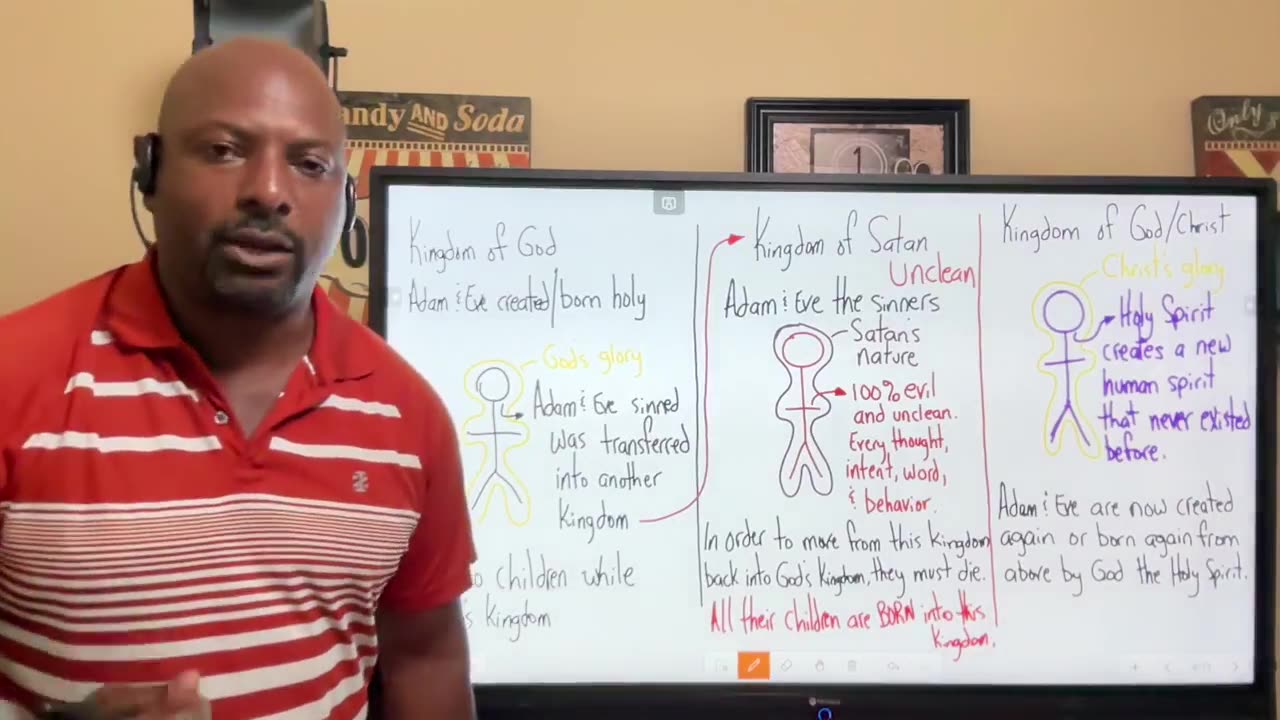 andy AND Soda
Only
1
Kingdom of God
Adam & Eve created/born holy
God's glory
Adam & Eve sinned
was transferred
into another
Kingdom
children while
Kingdom
Kingdom of Satan
Unclean
Adam & Eve the sinners
Satan's
nature
100% evil
and unclean.
Every thought,
intent, word,
& behavior.
In order to move from this kingdom
back into God's Kingdom, they must die.
All their children are BORN into this
Kingdom.
Kingdom of God/Christ
Christ's glory
Holy Spirit
creates a new
human spirit
that never existed
before.
Adam & Eve are now created
again or born again from
above by God the Holy Spirit.